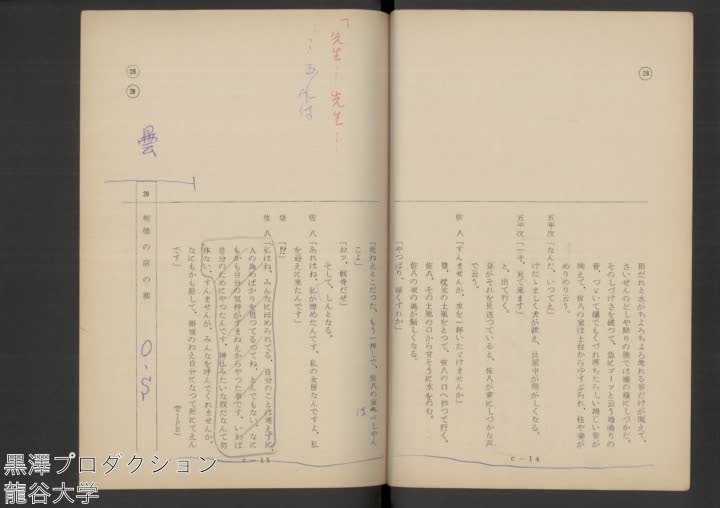 28
雨だれと水がちよろちよろ流れる音だけが聞えて、
さいぜんのどしや降りの後では嘘の様にしづかだ。
そのしづけさを破つて、急にゴーツと云う地鳴りの
響いて、佐八の家は土台からゆすぶられ、柱や梁が
めりめり云う。
五平次「なんだ、いつてえ」
けたゝましく犬が吠え、長屋中が騒がしくなる。
五平次「一寸、見て来ます」
と、出て行く。
登がそれを見送つていると、佐八が楽にしづかな声
で云う。
佐 八「すんませんが、水を一杯いたゞけませんか」
登、枕元の土瓶をとつて、佐八の口へ持つて行く。
佐八、その土瓶の口から甘そうに水をのむ。
佐八の家の裏が騒しくなる。
「やつぱり、崖くずれか」
C－14
「先生！先生！
…あれは
28
29
曇
「危ねえとこだつた、もう一押しで、佐八の家
こよ」
「おツ、骸骨だぜ」
そして、しんとなる。
佐 八「あれはね、私が埋めたんです。私の女房なんですよ、私
を迎えに来たんです」
登 「⁉」
佐 八「私はね、みんなにほめられてる、自分のことは考えずに、
人の為めばかりを見つてるつてね、とんでもない、なに
もかも自分の気持がすまねえからやつた事です、いわば
自分のためにやつたんです、神仏みたいな奴だなんて勿
体ない、すんませんが、みんなを呼んでくれませんか、
なにもかも話して、
です」
29
O.S
C－15
黒澤プロダクション
龍谷大学